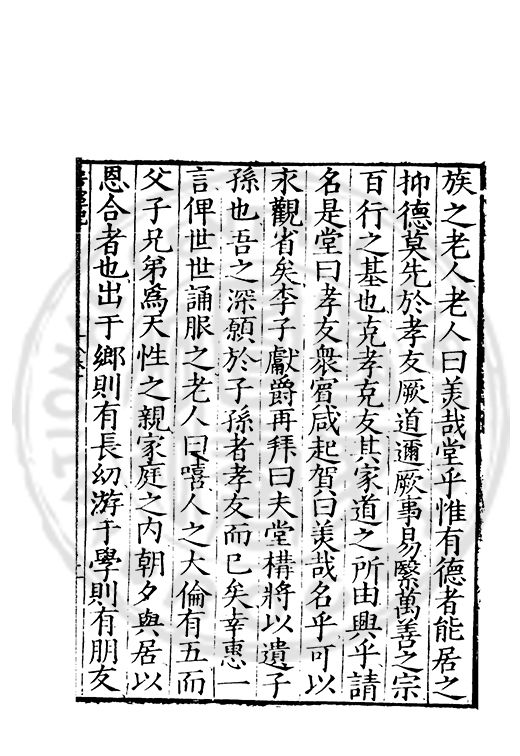 族之老人老人曰美哉堂乎惟有德者能居之
抑德莫先於孝友厥道邇厥事易繄萬善之宗
百行之基也克孝克友其家道之所由興乎請
名是堂曰孝友衆賓咸起賀曰美哉名乎可以
永觀省矣李子獻爵再拜曰夫堂構將以遺子
孫也吾之深願於子孫者孝友而已矣幸惠一
言俾世世誦服之老人曰嘻人之大倫有五而
父子兄弟爲天性之親家庭之内朝夕與居以
恩合者也出于鄉則有長幼游于學則有朋友